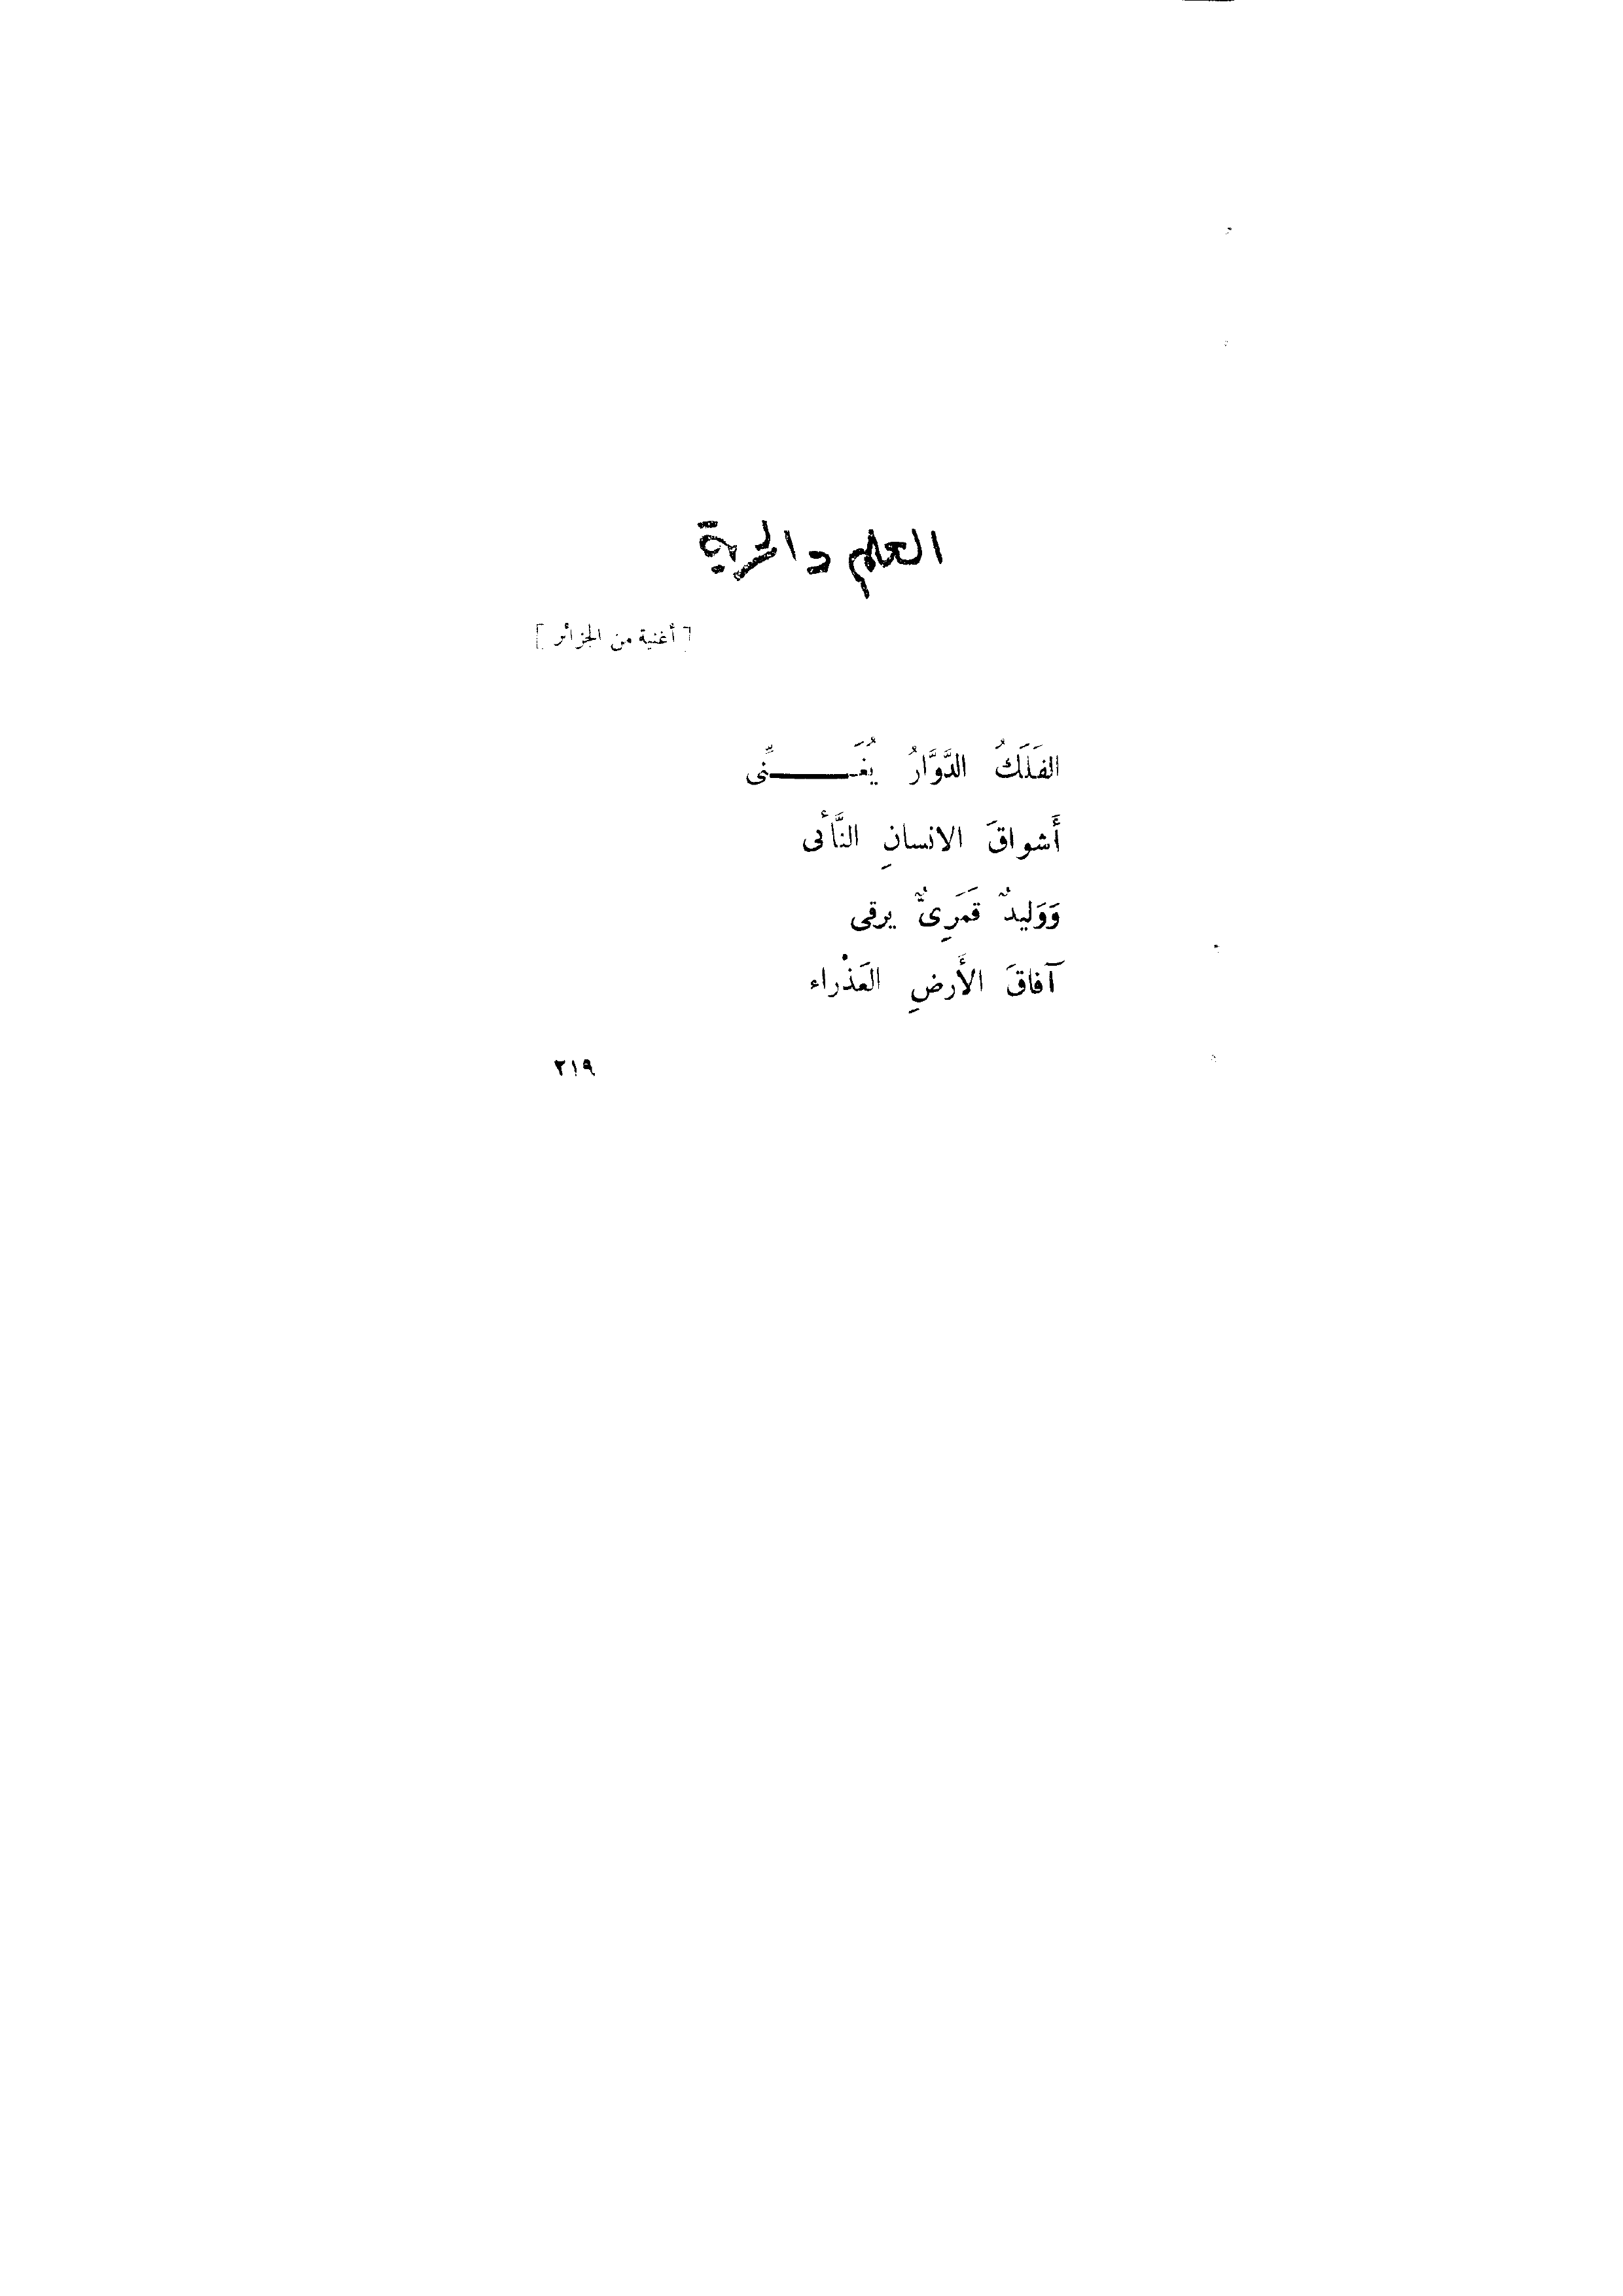 العلم والحرية
[ أغنية من الجزائر ]
الفَلَكُ الدَّوَّارُ يُغَـــــنِّى
أَشواقَ الانسانِ النَّائى
وَوَليدٌ قَمَرِىٌّ يرقى
آفاقَ الأَرضِ العَذْراء
٢١٩